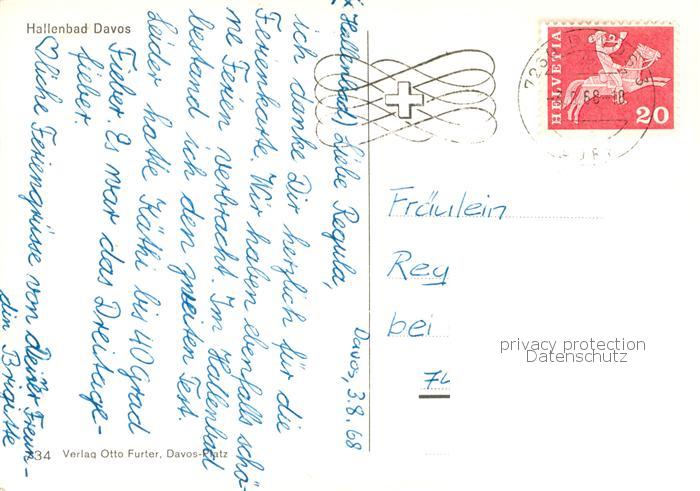 Hallenbad Davos
Davos, 3.8.68
(x Hallenbad) Liebe Regula,
ich danke Dir herzlich für die
Ferienkarte. Wir haben ebenfalls schö-
ne Ferien verbracht. Im Hallenbad
bestand ich den zweiten Test.
Leider hatte Käthi bis 40 grad
Fieber. Es war das Dreitage-
fieber.
liche Feriengrüsse von Deiner Freun-
din Brigitte
334 Verlag Otto Furter, Davos-Platz
HELVETIA
20
Fräulein
Reg
bei
74
privacy protection
Datenschutz